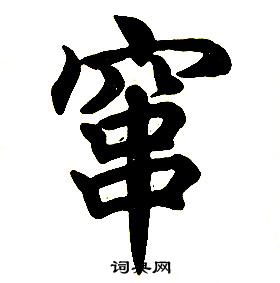 窜
词典网